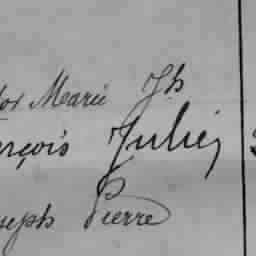 tor Marie Jh
rçois Julien
seph Pierre